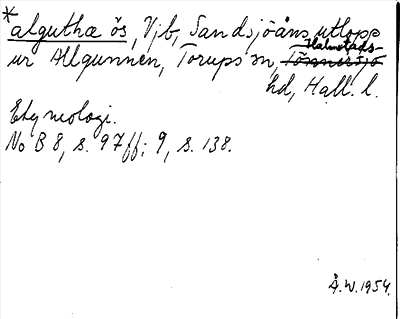 *alguthæ ōs, Vjb, Sandsjöåns utlopp
ur Allgunnen, Torups sn, Halmstads-
hd, Hall. l.
Etymologi.
No B 8, s. 97ff; 9, s. 138.
Å.W. 1954.